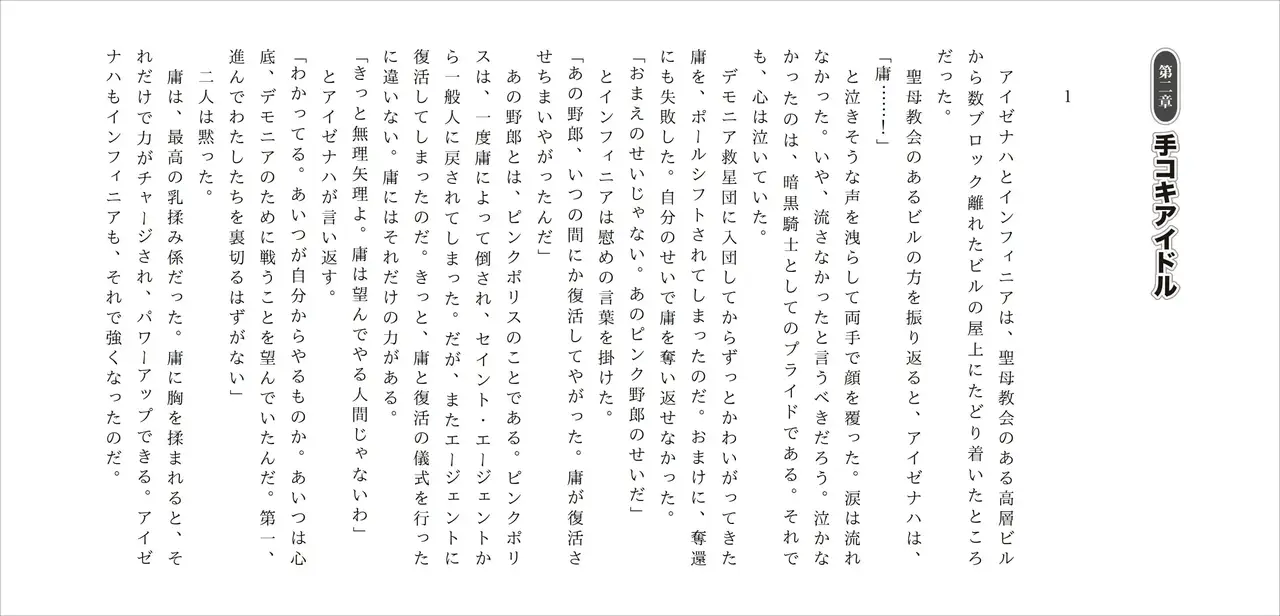 第二章 手コキアイドル
1
アイゼナハとインフィニアは、聖母教会のある高層ビル
から数ブロック離れたビルの屋上にたどり着いたところ
だった。
聖母教会のあるビルの方を振り返ると、アイゼナハは、
「庸……！」
と泣きそうな声を洩らして両手で顔を覆った。涙は流れ
なかった。いや、流さなかったと言うべきだろう。泣かな
かったのは、暗黒騎士としてのプライドである。それで
も、心は泣いていた。
デモニア救星団に入団してからずっとかわいがってきた
庸を、ポールシフトされてしまったのだ。おまけに、奪還
にも失敗した。自分のせいで庸を奪い返せなかった。
「おまえのせいじゃない。あのピンク野郎のせいだ」
とインフィニアは慰めの言葉を掛けた。
「あの野郎、いつの間にか復活してやがった。庸が復活さ
せちまいやがったんだ」
あの野郎とは、ピンクポリスのことである。ピンクポリ
スは、一度庸によって倒され、セイント・エージェントか
ら一般人に戻されてしまった。だが、またエージェントに
復活してしまったのだ。きっと、庸と復活の儀式を行った
に違いない。庸にはそれだけの力がある。
「きっと無理矢理よ。庸は望んでやる人間じゃないわ」
とアイゼナハが言い返す。
「わかってる。あいつが自分からやるものか。あいつは心
底、デモニアのために戦うことを望んでいたんだ。第一、
進んでわたしたちを裏切るはずがない」
二人は黙った。
庸は、最高の乳揉み係だった。庸に胸を揉まれると、そ
れだけで力がチャージされ、パワーアップできる。アイゼ
ナハもインフィニアも、それで強くなったのだ。